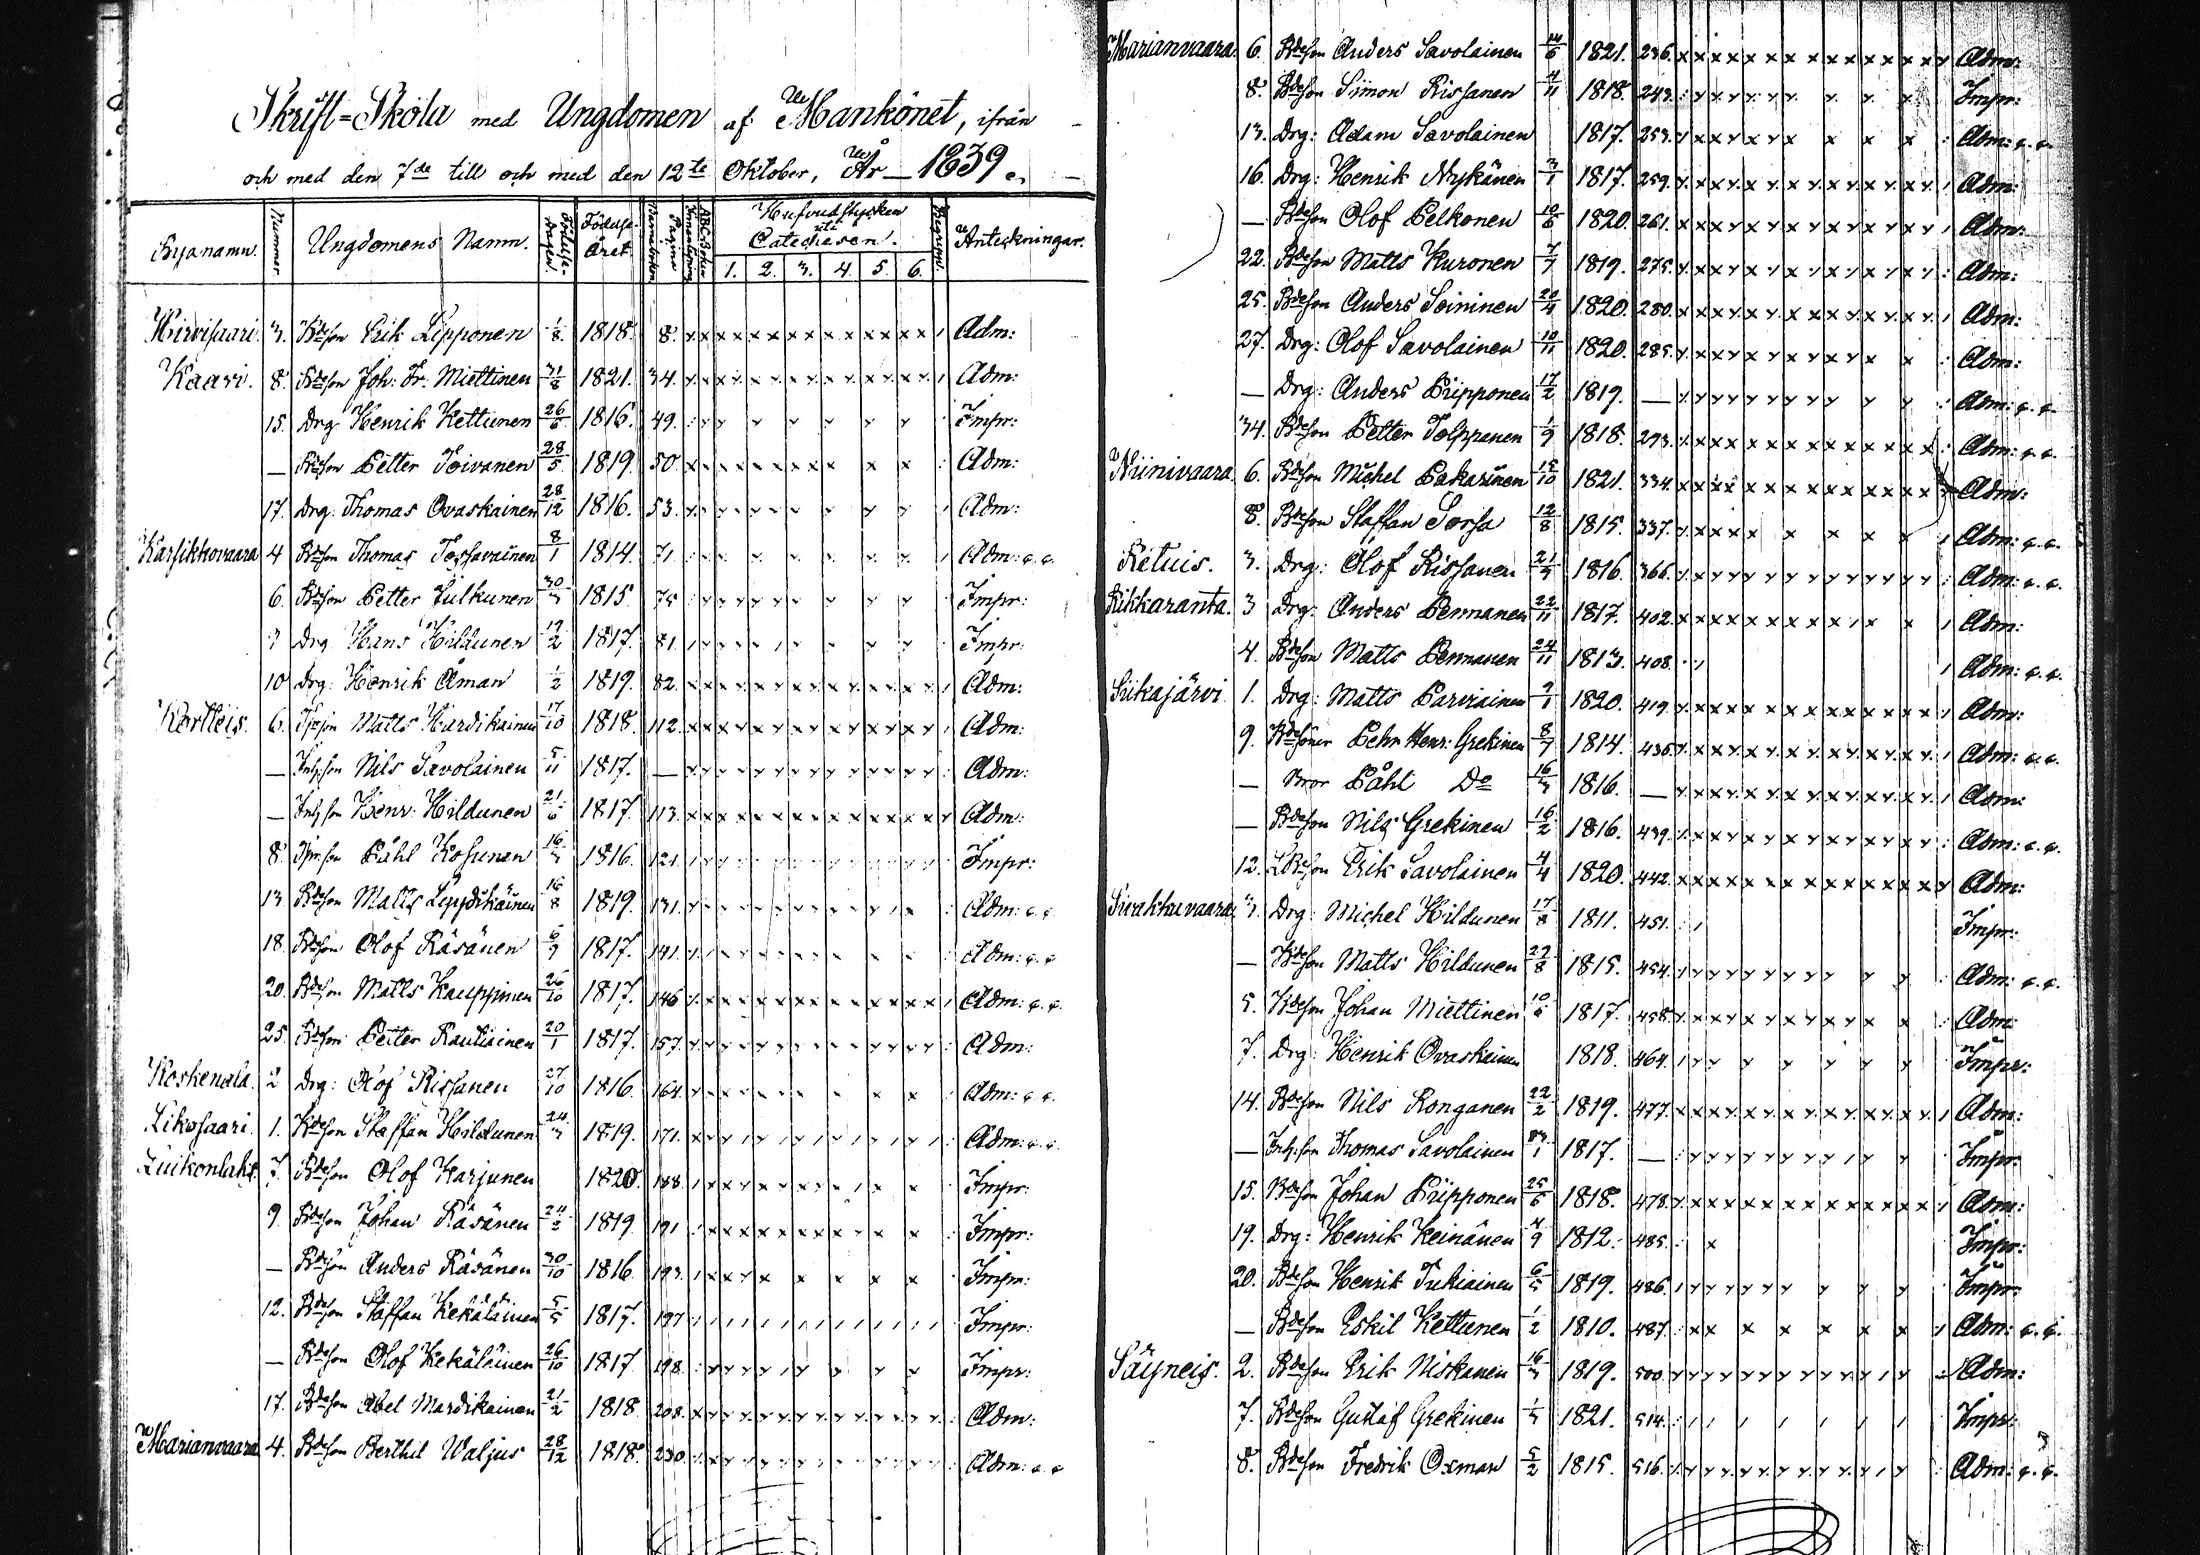 Skrift-Skola med Ungdomen af Mankönet, ifrån
och med den 7de till och med den 12te Oktober, År 1839.
Byanamn. Nummer. Ungdomens Namn. Födelse-dagen. Födelse-året Pagina ABC-Boken Hufvudstycken uti Catechesen. Begreppet. Anteckningar.
1. 2. 3. 4. 5. 6.
Hirvisaari. 3. Bdeson Erik Lipponen 1/8 1818. 8. Adm:
Kaavi. 8. Bdeson Joh: Fr: Miettinen 31/8 1821. 34. Adm:
15. Drg Henrik Kettunen 26/6 1816. 49. Impr:
— Bdeson Petter Toivanen 28/5 1819. 50. Adm:
17. Drg: Thomas Ovaskainen 28/12 1816. 53. Adm:
Karsikkovaara 4 Bdeson Thomas Tossavainen 8/1 1814 71. Adm: c. c.
6. Bdeson Petter Julkunen 1815 75 Impr:
Drg Hans Hildunen 1817. 81. Impr:
10 Drg: Henrik Åman 1/2 1819. 82. Adm:
Kortteis. 6. Matts Hardikainen 17/10 1818. 112. Adm:
— Inh: son Nils Savolainen 5/11 1817. — Adm:
— Inh: son Henr: Hildunen 21/6 1817. 113. Adm:
8. Påhl Kosunen 1816. 121. Impr:
13. Bdeson Matts Leppikäinen 16/8 1819. 131. Adm: c. c.
18. Bdeson Olof Räsänen 6/9 1817. 141. Adm: c. c
20. Bdeson Matts Kauppinen 26/10 1817. 146 Adm: c. c.
25. Bdeson Petter Rautiainen 20/1 1817. 157. Adm:
Koskenala. 2 Drg: Olof Rissanen 27/10 1816. 164. Adm: c. c.
Likosaari. 1. Bdeson Staffan Hildunen 1819. 171. Adm: c. c.
Luikonlaks. 7. Bdeson Olof Karjunen 1820. 188. Impr:
9. Bdeson Johan Räsänen 24/2 1819. 191 Impr:
— Bdeson Anders Räsänen 30/10 1816. 193. Impr:
12. Bdeson Staffan Kekäläinen 5/5 1817. 197 Impr:
— Bdeson Olof Kekäläinen 26/10 1817. 198. Impr:
17. Bdeson Abel Mardikainen 21/2 1818. 208. Adm:
Marianvaara 4. Bdeson Berthil Waljus 28/12 1818. 230. Adm: c. c
Marianvaara. 6. Bdeson Anders Savolainen 14/6 1821. 236. Adm:
8. Bdeson Simon Rissanen 4/11 1818. 243. Impr:
13. Drg: Adam Savolainen 1817. 253. Adm: c. c.
16. Drg: Henrik Nykänen 3/1 1817. 259. Adm:
— Bdeson Olof Pelkonen 10/6 1820. 261. Adm:
22. Bdeson Matts Kuronen 7/7 1819. 275. Adm:
25. Bdeson Anders Soininen 20/4 1820. 280. Adm:
27. Drg: Olof Savolainen 10/11 1820. 285. Adm:
— Drg: Anders Piipponen 17/2 1819. — Adm: c. c.
34. Bdeson Petter Tolppanen 1/9 1818. 293. Adm: c. c.
Niinivaara 6. Bdeson Michel Pakarinen 15/10 1821. 334. Adm:
8. Bdeson Staffan Sorsa 12/8 1815. 337. Adm: c. c.
Retuis. 3. Drg: Olof Rissanen 1816. 366. Adm: c. c.
Rikkaranta. 3 Drg: Anders Pennanen 22/11 1817. 402. Adm:
4. Bdeson Matts Pennanen 24/11 1813. 408. Adm: c. c.
Siikajärvi. 1. Drg: Matts Parviainen 1820. 419. Adm:
9. Bdesöner Pehr Henr: Grekinen 8/7 1814. 436. Adm: c. c.
— Bror Påhl Do 1816. — Adm:
— Bdeson Nils Grekinen 16/2 1816. 439. Adm: c. c.
12. Erik Savolainen 4/4 1820. 442. Adm:
Sivakkavaara 3. Drg: Michel Hildunen 17/8 1811. 451. Impr:
— Bdeson Matts Hildunen 1815. 454. Adm: c. c.
5. Bdeson Johan Miettinen 1817. 458. Adm:
7. Drg: Henrik Ovaskainen 1818. 464. Impr:
14. Bdeson Nils Ronganen 22/2 1819. 477. Adm:
— Inh: son Thomas Savolainen 1817. — Impr:
15. Bdeson Johan Piipponen 25/6 1818. 478. Adm:
19. Drg: Henrik Keinänen 4/9 1812. 485. Impr:
20. Bdeson Henrik Tukiainen 1819. 486. Impr:
— Bdeson Eskil Kettunen 1/2 1810. 487. Adm: c. c.
Säyneis. 2. Bdeson Erik Niskanen 1819. 500. Adm:
7. Bdeson Gustaf Grekinen 1821. 514. Impr:
8. Bdeson Fredrik Oxman 5/2 1815. 516. Adm: c. c.